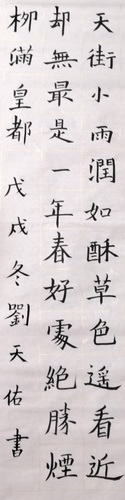 天街小雨潤如酥草色遥看近
却無最是一年春好處絕勝煙
柳滿皇都 戊戌冬劉天佑書